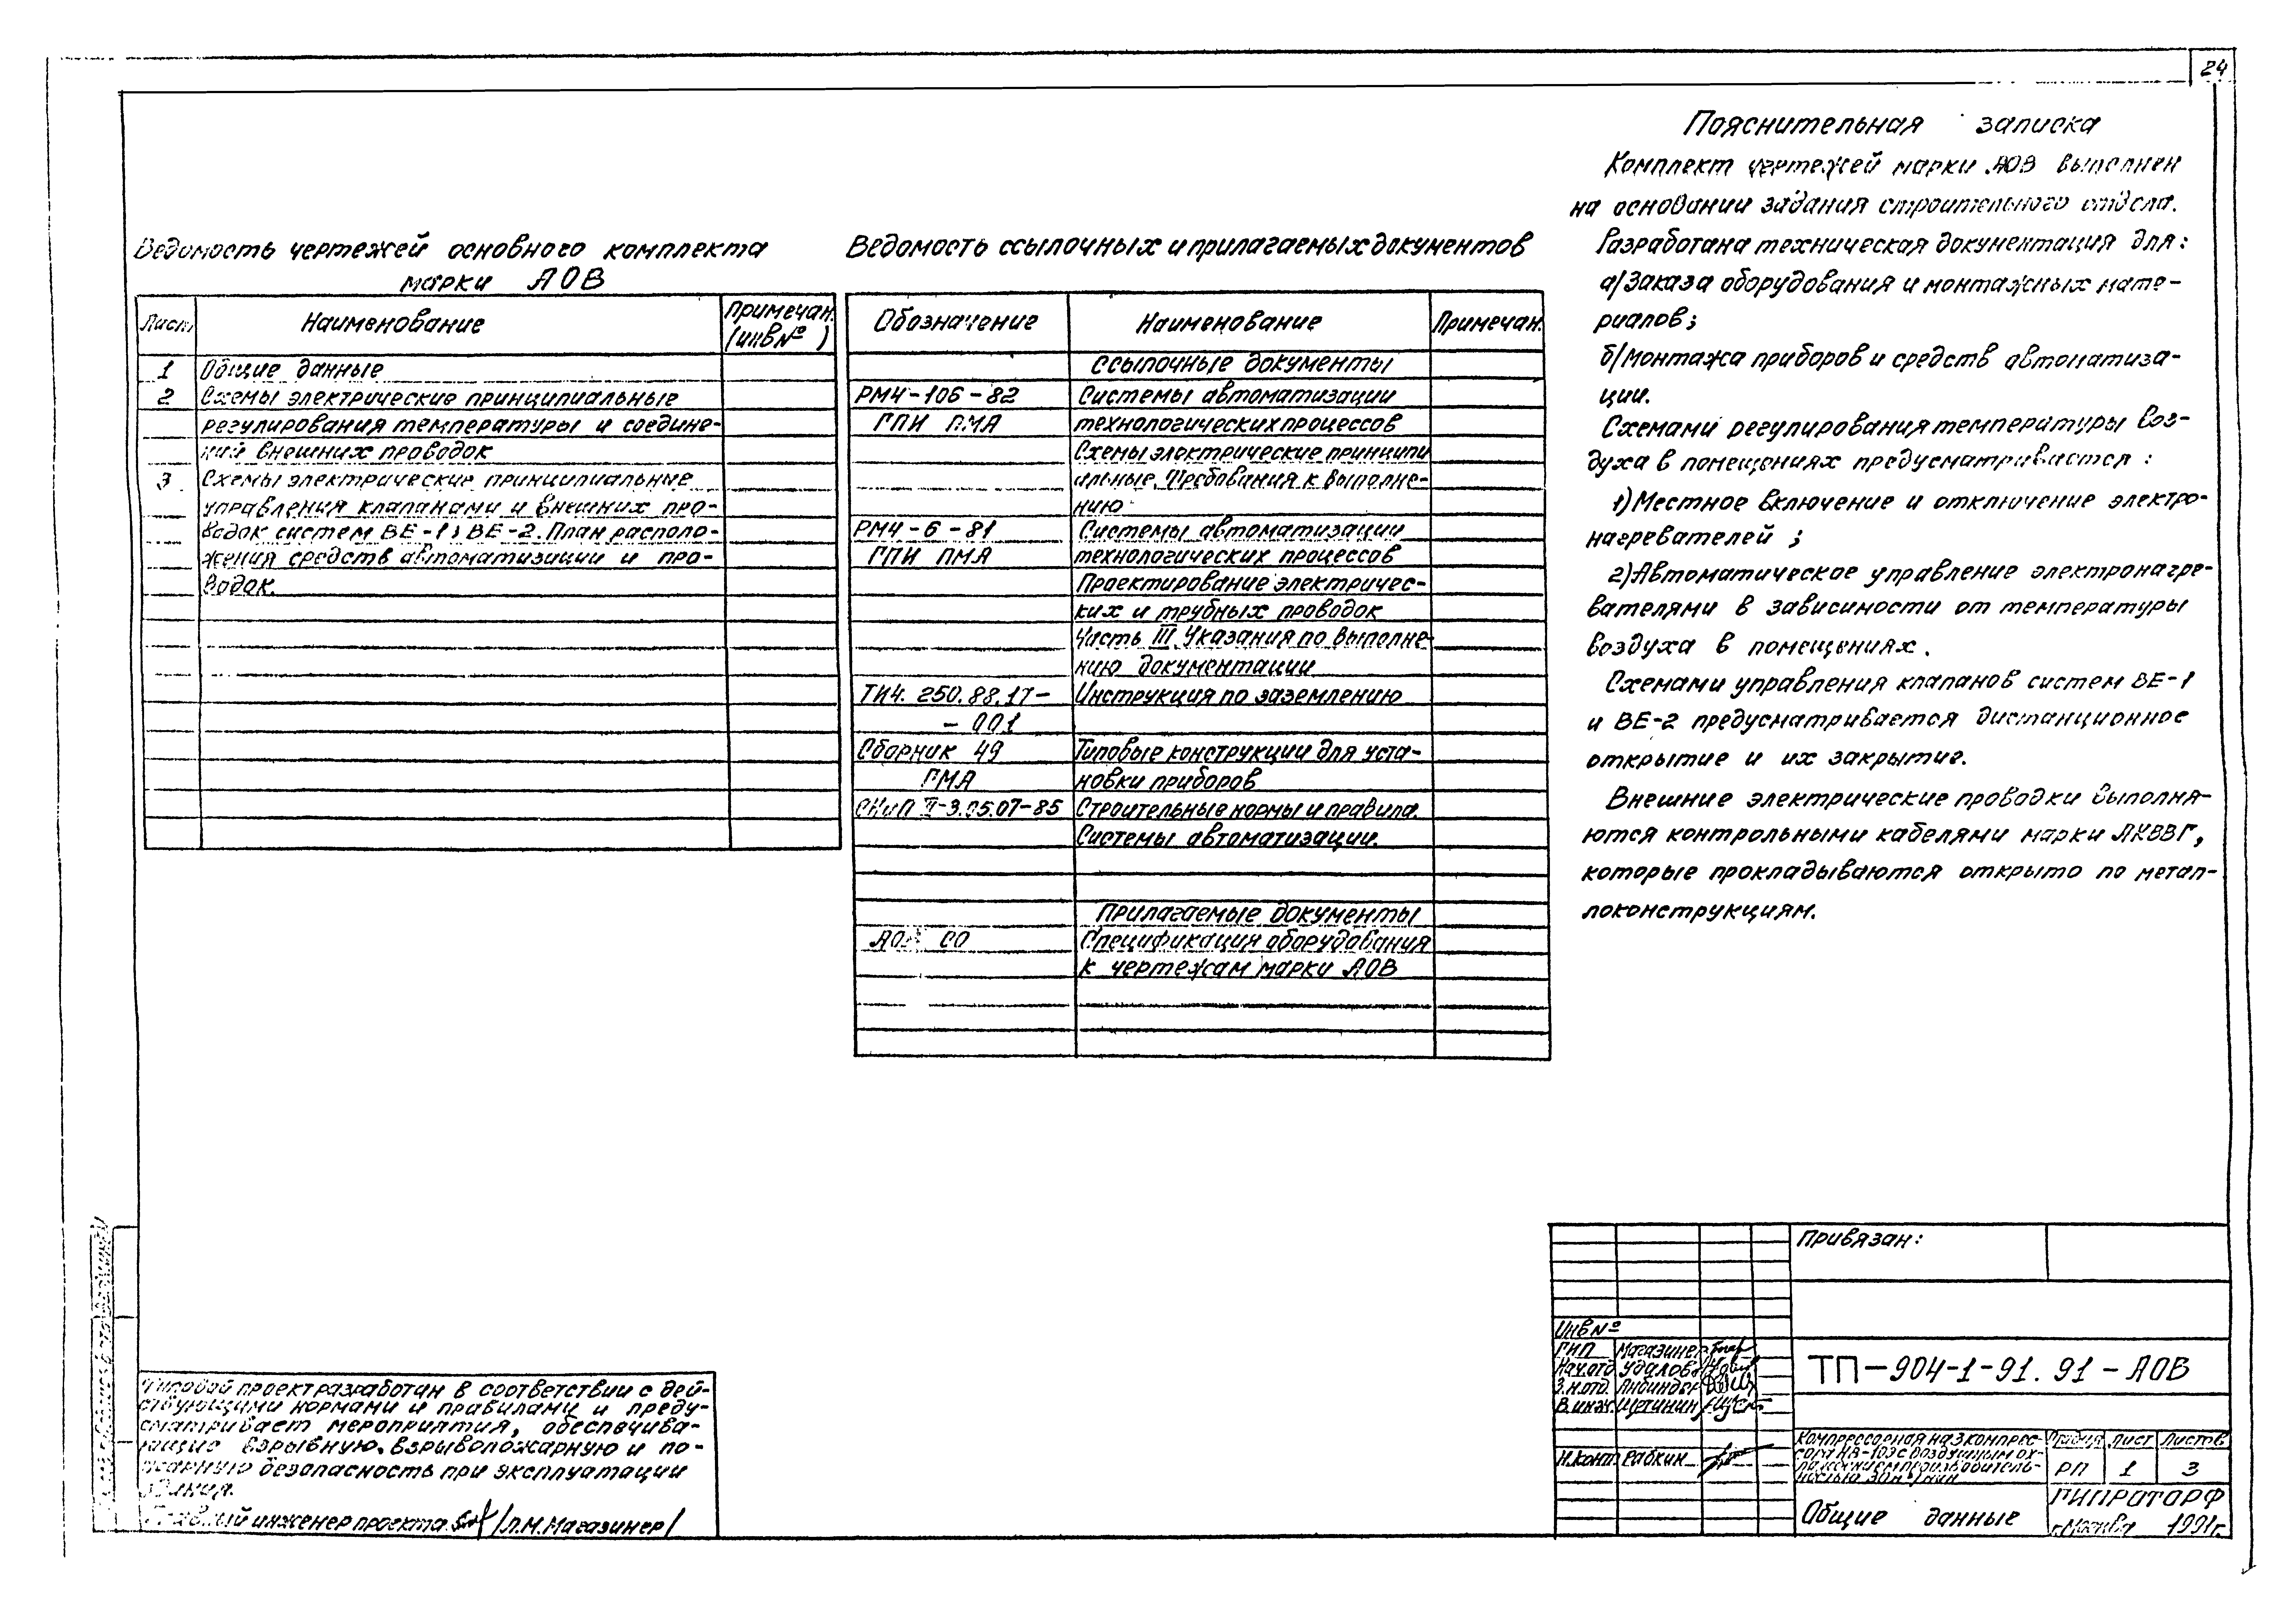 24
Ведомость чертежей основного комплекта
марки АОВ
Лист Наименование Примечан. (инв №)
1 Общие данные
2 Схемы электрические принципиальные
регулирования температуры и соедине-
ний внешних проводок
3 Схемы электрические принципиальные
управления клапанами и внешних про-
водок систем ВЕ-1, ВЕ-2. План располо-
жения средств автоматизации и про-
водок.
Ведомость ссылочных и прилагаемых документов
Обозначение Наименование Примечан.
Ссылочные документы
РМ4-106-82 Системы автоматизации
ГПИ ПМА технологических процессов
Схемы электрические принципи
альные. Требования к выполне-
нию
РМ4-6-81 Системы автоматизации
ГПИ ПМА технологических процессов
Проектирование электричес-
ких и трубных проводок
Часть III. Указания по выполне-
нию документации
ТИ4. 250.88.17- Инструкция по заземлению
- 001
Сборник 49 Типовые конструкции для уста-
ПМА новки приборов
СНиП 3.05.07-85 Строительные нормы и правила.
Системы автоматизации.
Прилагаемые документы
АОВ СО Спецификация оборудования
к чертежам марки АОВ
Пояснительная записка
Комплект чертежей марки АОВ выполнен
на основании задания строительного отдела.
Разработана техническая документация для:
а/Заказа оборудования и монтажных мате-
риалов;
б/монтажа приборов и средств автоматиза-
ции.
Схемами регулирования температуры воз-
духа в помещениях предусматривается:
1)Местное включение и отключение электро-
нагревателей;
2)Автоматическое управление электронагре-
вателями в зависимости от температуры
воздуха в помещениях.
Схемами управления клапанов систем ВЕ-1
и ВЕ-2 предусматривается дистанционное
открытие и их закрытие.
Внешние электрические проводки выполня-
ются контрольными кабелями марки АКВВГ,
которые прокладываются открыто по метал-
локонструкциям.
Типовой проект разработан в соответствии с дей-
ствующими нормами и правилами и преду-
сматривает мероприятия, обеспечива-
ющие взрывную, взрывопожарную и по-
жарную безопасность при эксплуатации
здания.
Главный инженер проекта /Л.М.Магазинер/
Привязан:
Инв №
ГИП Магазинер
Нач.отд. Удалов
З.н.отд. Либиндер
В.инж. Щетинин
Н.конт. Рабкин
ТП-904-1-91.91-АОВ
Компрессорная на 3 компрес-
сора с воздушным ох-
лаждением производитель-
ностью
Стадия Лист Листов
РП 1 3
Общие данные
ГИПРОТОРФ
г.Москва 1991г.